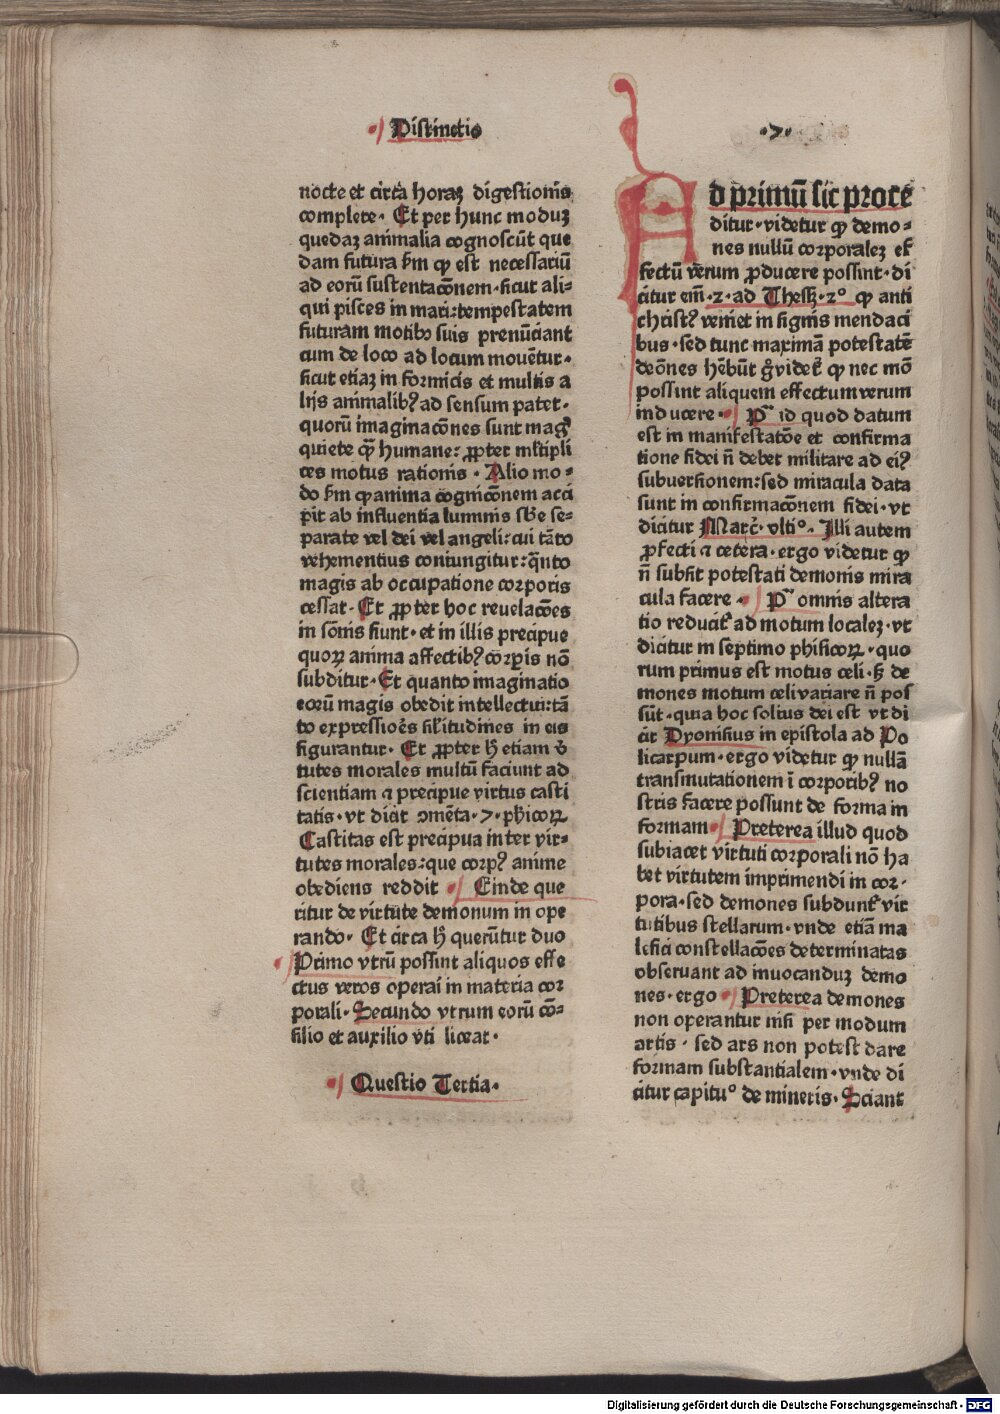 Distinctio
·7·
nocte et circa horaꝫ digestionis
complete· Et per hunc moduꝫ
quedaꝫ animalia cognoscūt que
dam futura ẜm qꝫ est necessariū
ad eorū sustentacōnem·sicut ali-
qui pisces in mari:tempestatem
futuram motibꝰ suis prenūciant
cum de loco ad locum mouētur·
sicut etiaꝫ in formicis et multis a
lijs animalibꝰ ad sensum patet·
quorū imaginacōnes sunt magꝭ
quiete qꝫ humane: ꝓpter mltipli
ces motus rationis· Alio mo-
do ẜm qꝫ anima cognicōnem acci
pit ab influentia luminis sbe se-
parate vel dei vel angeli:cui tāto
vehementius coniungitur:q̄nto
magis ab occupatione corporis
cessat· Et ꝓpter hoc reuelacōes
in sōnis fiunt·et in illis precipue
quoꝝ anima affectibꝰ corꝑis nō
subditur·Et quanto imaginatio
eorū magis obedit intellectui:tā
to expressiões silitudines in eis
figurantur· Et ꝓpter h̄ etiam v̄
tutes morales multū faciunt ad
scientiam ⁊ precipue virtus casti
tatis·vt dicit ↄmēta·7·phicoꝝ
Castitas est precipua inter vir-
tutes morales:que corpꝰ anime
obediens reddit Einde que
ritur de virtute demonum in ope
rando· Et circa h̄ querūtur duo
Primo vtrū possint aliquos effe
ctus veros operai in materia cor
porali·Secundo vtrum eorū cō-
silio et auxilio vti liceat·
Questio Tertia·
AD primū sic proce
ditur·videtur qꝫ demo-
nes nullū corporaleꝫ ef
fectū verum ꝓducere possint·di
citur em̄·2·ad Thesꝫ·2º qꝫ anti
christꝰ veniet in signis mendaci
bus·sed tunc maximā potestatē
deōnes hēbūt gͦ videt᷑ qꝫ nec mō
possint aliquem effectum verum
inducere· P͂ id quod datum
est in manifestatōe et confirma
tione fidei n̄ debet militare ad eiꝰ
subuersionem:sed miracula data
sunt in confirmacōnem fidei·vt
dicitur Marc̄·vltiº·Illi autem
ꝓfecti ⁊ cetera·ergo videtur qꝫ
n̄ subsit potestati demonis mira
cula facere· P͂ omnis altera
tio reducit᷑ ad motum localeꝫ·vt
dicitur in septimo phisicoꝝ·quo
rum primus est motus celi·ꞩ de
mones motum celi variare n̄ pos
sūt·quia hoc solius dei est vt di
cit Dyonisius in epistola ad Po
licarpum·ergo videtur qꝫ nullā
transmutationem ī corporibꝰ no
stris facere possunt de forma in
formam Preterea illud quod
subiacet virtuti corporali nō ha
bet virtutem imprimendi in cor·
pora·sed demones subdunt᷑ vir
tutibus stellarum·vnde etiā ma
lefici constellacōes determinatas
obseruant ad inuocanduꝫ demo
nes·ergo Preterea demones
non operantur nisi per modum
artis· sed ars non potest dare
formam substantialem·vnde di
citur capituº de mineris·Sciant
Digitalisierung gefördert durch die Deutsche Forschungsgemeinschaft - DFG